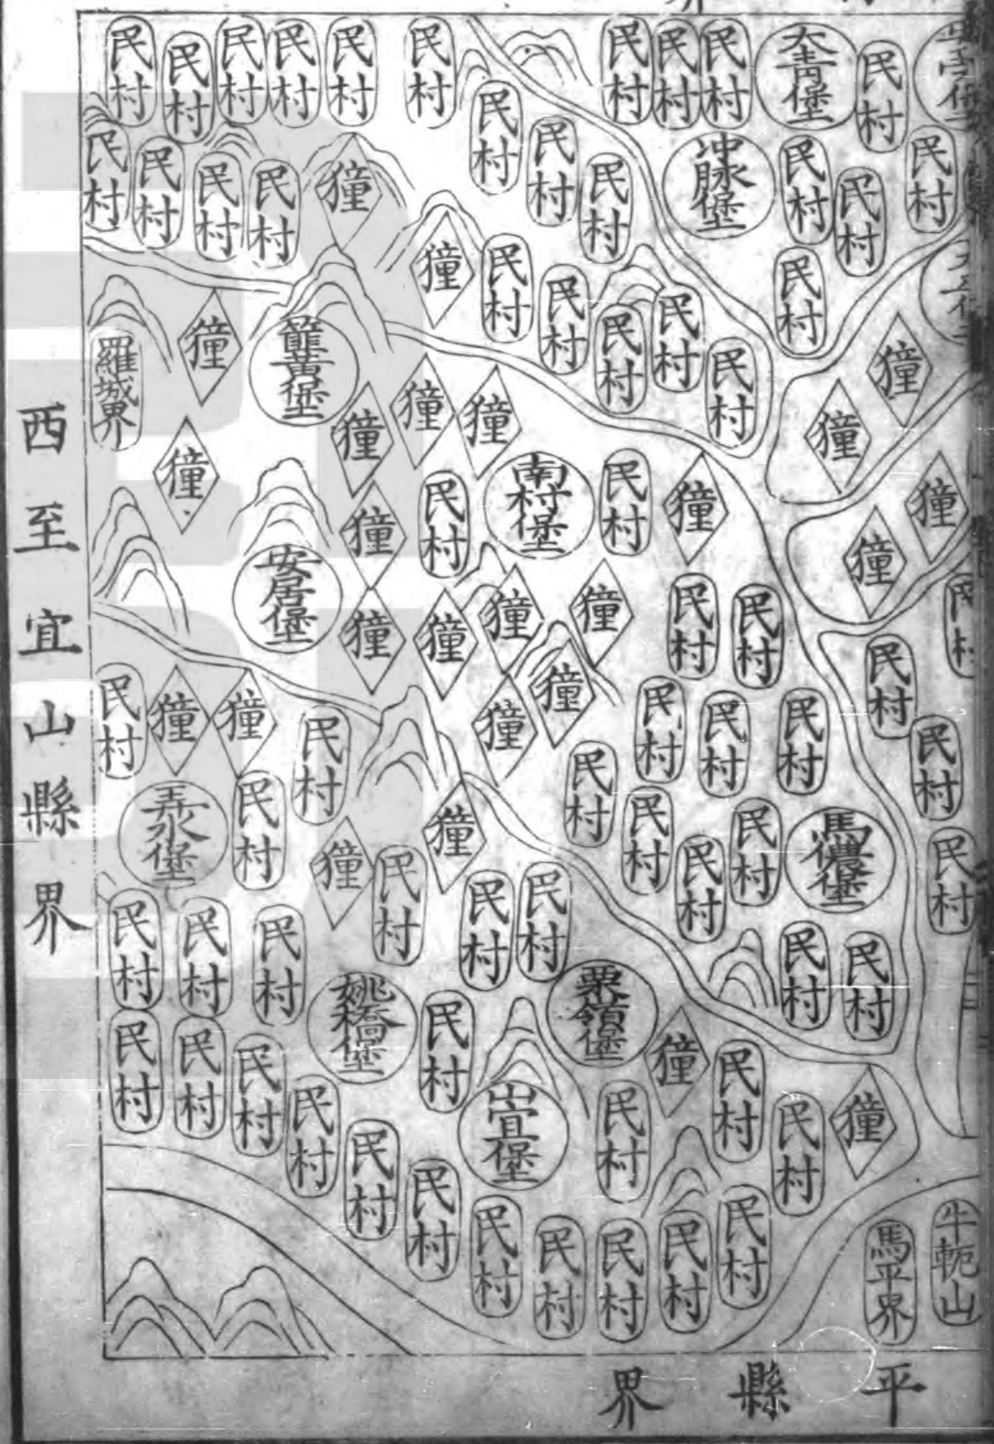 民村
民村
民村
民村
民村
民村
民村
民村
民村
大青堡
民村
民村
民村
民村
民村
獞
民村
民村
民村
冲脉堡
民村
民村
民村
獞
民村
民村
民村
民村
民村
民村
羅城界
獞
黃堡
獞
獞
獞
獞
獞
獞
民村
南村堡
民村
獞
獞
獞
獞
安居堡
獞
獞
獞
獞
民村
民村
獞
獞
民村
民村
獞
獞
民村
民村
民村
民村
民村
民村
堡
民村
獞
獞
民村
民村
民村
民村
馬堡
民村
民村
民村
民村
民村
民村
民村
民村
姚橋堡
民村
粟嶺堡
獞
民村
民村
民村
民村
民村
民村
山宜堡
民村
民村
民村
獞
民村
民村
民村
民村
民村
馬平界
牛軛山
西至宜山縣界
平縣界